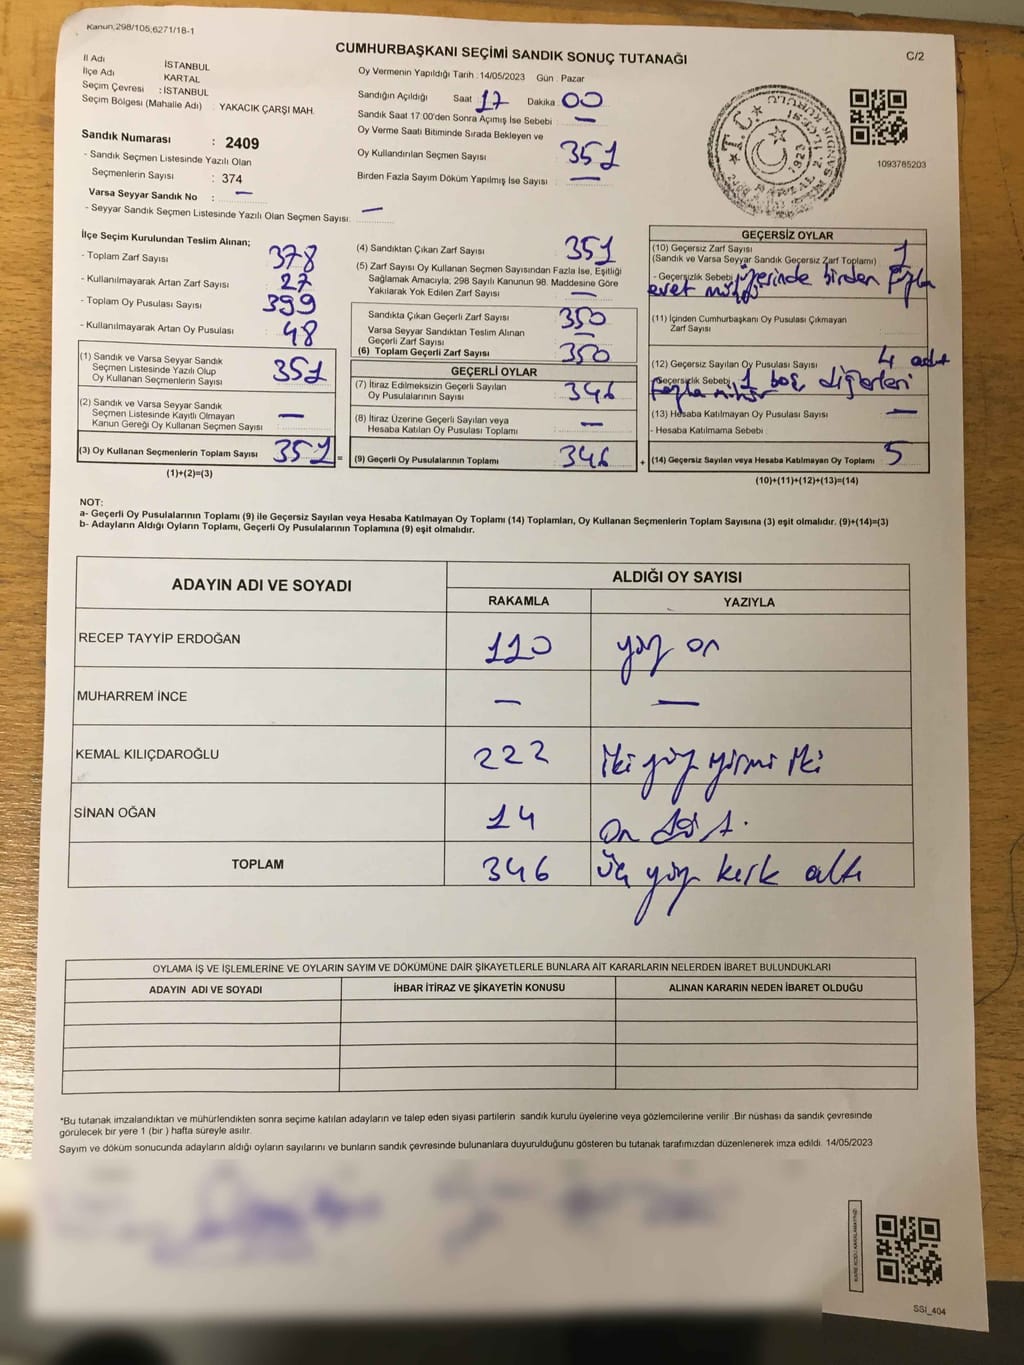 Kanun:298/105;6271/18-1
CUMHURBAŞKANI SEÇİMİ SANDIK SONUÇ TUTANAĞI
C/2
İl Adı İSTANBUL
İlçe Adı KARTAL
Seçim Çevresi : İSTANBUL
Seçim Bölgesi (Mahalle Adı) : YAKACIK ÇARŞI MAH.
Sandık Numarası : 2409
- Sandık Seçmen Listesinde Yazılı Olan
Seçmenlerin Sayısı : 374
Varsa Seyyar Sandık No : —
- Seyyar Sandık Seçmen Listesinde Yazılı Olan Seçmen Sayısı: —
Oy Vermenin Yapıldığı Tarih : 14/05/2023 Gün : Pazar
Sandığın Açıldığı Saat 17 Dakika 00
Sandık Saat 17.00'den Sonra Açımış İse Sebebi : —
Oy Verme Saati Bitiminde Sırada Bekleyen ve
Oy Kullandırılan Seçmen Sayısı 351
Birden Fazla Sayım Döküm Yapılmış İse Sayısı : —
T.C.
1093785203
İlçe Seçim Kurulundan Teslim Alınan;
- Toplam Zarf Sayısı 378
- Kullanılmayarak Artan Zarf Sayısı 27
- Toplam Oy Pusulası Sayısı 399
- Kullanılmayarak Artan Oy Pusulası 48
(1) Sandık ve Varsa Seyyar Sandık
Seçmen Listesinde Yazılı Olup
Oy Kullanan Seçmenlerin Sayısı 351
(2) Sandık ve Varsa Seyyar Sandık
Seçmen Listesinde Kayıtlı Olmayan
Kanun Gereği Oy Kullanan Seçmen Sayısı —
(3) Oy Kullanan Seçmenlerin Toplam Sayısı 351 =
(1)+(2)=(3)
(4) Sandıktan Çıkan Zarf Sayısı 351
(5) Zarf Sayısı Oy Kullanan Seçmen Sayısından Fazla İse, Eşitliği
Sağlamak Amacıyla, 298 Sayılı Kanunun 98. Maddesine Göre
Yakılarak Yok Edilen Zarf Sayısı —
Sandıkta Çıkan Geçerli Zarf Sayısı 350
Varsa Seyyar Sandıktan Teslim Alınan
Geçerli Zarf Sayısı
(6) Toplam Geçerli Zarf Sayısı 350
GEÇERLİ OYLAR
(7) İtiraz Edilmeksizin Geçerli Sayılan
Oy Pusulalarının Sayısı 346
(8) İtiraz Üzerine Geçerli Sayılan veya
Hesaba Katılan Oy Pusulası Toplamı —
(9) Geçerli Oy Pusulalarının Toplamı 346 +
GEÇERSİZ OYLAR
(10) Geçersiz Zarf Sayısı 1
(Sandık ve Varsa Seyyar Sandık Geçersiz Zarf Toplamı)
- Geçersizlik Sebebi üzerinde birden fazla
evet mührü
(11) İçinden Cumhurbaşkanı Oy Pusulası Çıkmayan
Zarf Sayısı
(12) Geçersiz Sayılan Oy Pusulası Sayısı 4 adet
- Geçersizlik Sebebi 1 boş diğerleri
fazla mühür
(13) Hesaba Katılmayan Oy Pusulası Sayısı —
- Hesaba Katılmama Sebebi
(14) Geçersiz Sayılan veya Hesaba Katılmayan Oy Toplamı 5
(10)+(11)+(12)+(13)=(14)
NOT:
a- Geçerli Oy Pusulalarının Toplamı (9) ile Geçersiz Sayılan veya Hesaba Katılmayan Oy Toplamı (14) Toplamları, Oy Kullanan Seçmenlerin Toplam Sayısına (3) eşit olmalıdır. (9)+(14)=(3)
b- Adayların Aldığı Oyların Toplamı, Geçerli Oy Pusulalarının Toplamına (9) eşit olmalıdır.
ADAYIN ADI VE SOYADI ALDIĞI OY SAYISI
RAKAMLA YAZIYLA
RECEP TAYYİP ERDOĞAN 110 yüz on
MUHARREM İNCE — —
KEMAL KILIÇDAROĞLU 222 iki yüz yirmi iki
SİNAN OĞAN 14 on
TOPLAM 346 üç yüz kırk altı
OYLAMA İŞ VE İŞLEMLERİNE VE OYLARIN SAYIM VE DÖKÜMÜNE DAİR ŞİKAYETLERLE BUNLARA AİT KARARLARIN NELERDEN İBARET BULUNDUKLARI
ADAYIN ADI VE SOYADI İHBAR İTİRAZ VE ŞİKAYETİN KONUSU ALINAN KARARIN NEDEN İBARET OLDUĞU
*Bu tutanak imzalandıktan ve mühürlendikten sonra seçime katılan adayların ve talep eden siyasi partilerin sandık kurulu üyelerine veya gözlemcilerine verilir .Bir nüshası da sandık çevresinde
görülecek bir yere 1 (bir ) hafta süreyle asılır.
Sayım ve döküm sonucunda adayların aldığı oyların sayılarını ve bunların sandık çevresinde bulunanlara duyurulduğunu gösteren bu tutanak tarafımızdan düzenlenerek imza edildi. 14/05/2023
KARE KODU KARALAMAYIN
SSI_404